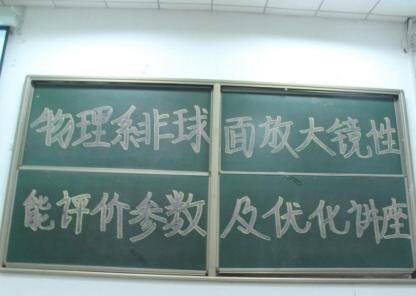 物理系非球面放大镜性
能评价参数及优化讲座